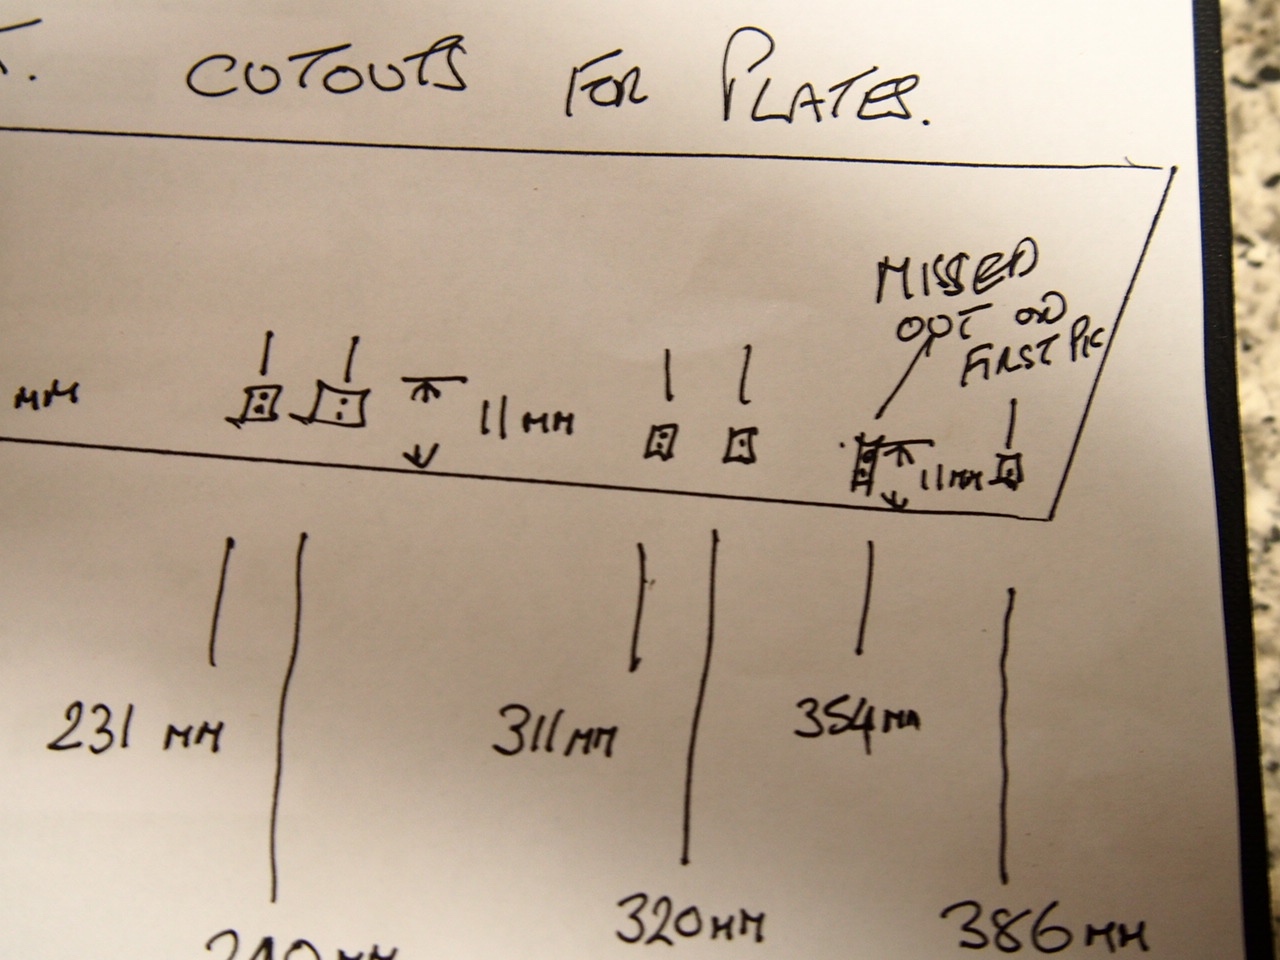 CUTOUTS FOR PLATES.
MISSED
OUT ON
FIRST PIC
MM
11 MM
11 MM
231 MM
311 MM
354 MM
320 MM
386 MM